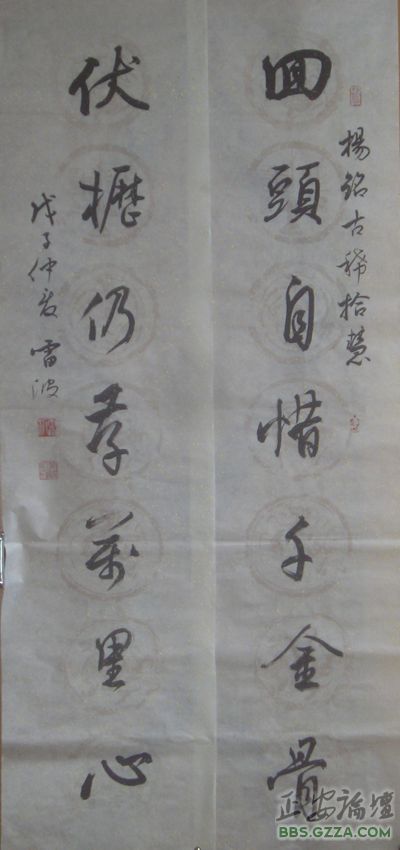 楊銘古稀拾慧
囬頭自惜千金骨
伏櫪仍存萬里心
戊子仲夏 雷波
正安論壇
BBS.GZZA.COM